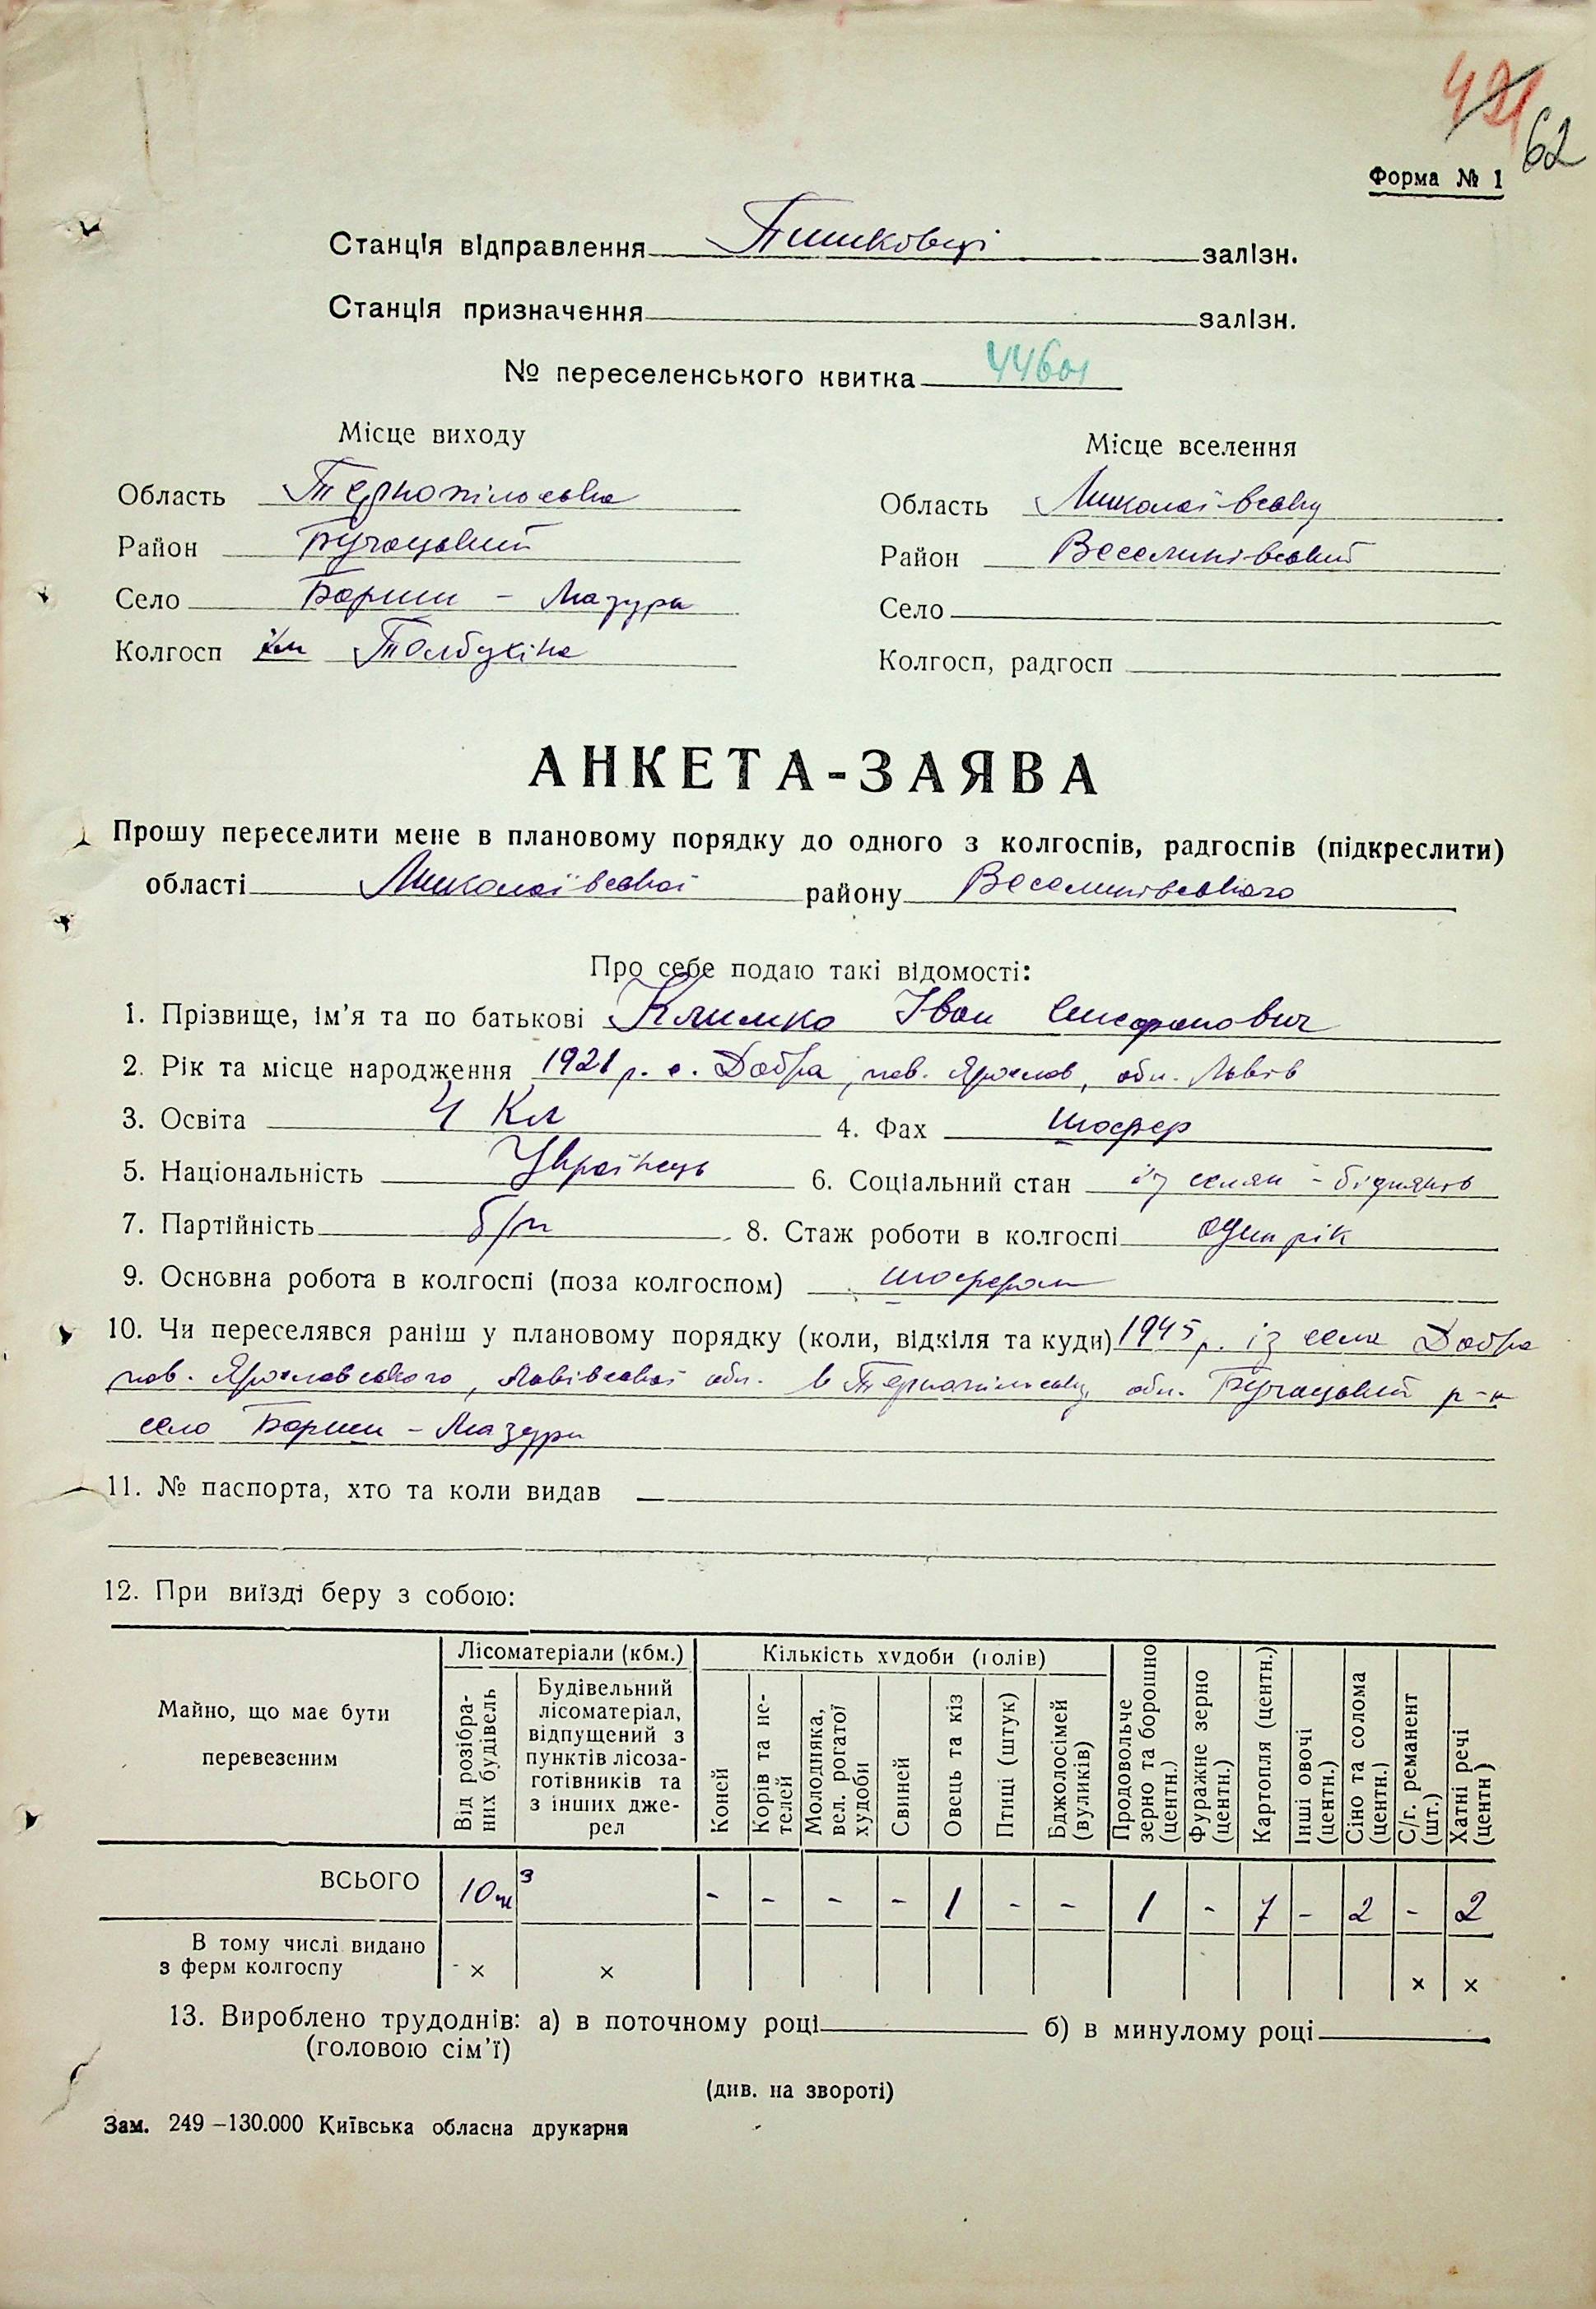 491 62
Форма № 1
Станція відправлення Пишковці залізн.
Станція призначення залізн.
№ переселенського квитка 44601
Місце виходу Місце вселення
Область Тернопільська Область Миколаївську
Район Бучацький Район Веселинівський
Село Бариш - Мазура Село
Колгосп ім Толбухіна Колгосп, радгосп
АНКЕТА-ЗАЯВА
Прошу переселити мене в плановому порядку до одного з колгоспів, радгоспів (підкреслити)
області Миколаївської району Веселинівського
Про себе подаю такі відомості:
1. Прізвище, ім'я та по батькові Климко Іван
2. Рік та місце народження 1921 р. с. Добра, пов. Ярослав, обл. Львів
3. Освіта 4 Кл 4. Фах шофер
5. Національність Українець 6. Соціальний стан із селян - бідняків
7. Партійність б/п 8. Стаж роботи в колгоспі один рік
9. Основна робота в колгоспі (поза колгоспом) шофером
10. Чи переселявся раніш у плановому порядку (коли, відкіля та куди) 1945 р. із села Добра
пов. Ярославського, Львівської обл. в Тернопільську обл. Бучацький р-н
село Бариш - Мазури
11. № паспорта, хто та коли видав —
12. При виїзді беру з собою:
Майно, що має бути перевезеним
Лісоматеріали (кбм.)
Від розібра-
них будівель
Будівельний
лісоматеріал,
відпущений з
пунктів лісоза-
готівників та
з інших дже-
рел
Кількість худоби (голів)
Коней
Корів та не-
телей
Молодняка,
вел. рогатої
худоби
Свиней
Овець та кіз
Птиці (штук)
Бджолосімей
(вуликів)
Продовольче
зерно та борошно
(центн.)
Фуражне зерно
(центн.)
Картопля (центн.)
Інші овочі
(центн.)
Сіно та солома
(центн.)
С/г. реманент
(шт.)
Хатні речі
(центн)
ВСЬОГО 10 м³ - - - - 1 - - 1 - 7 - 2 - 2
В тому числі видано
з ферм колгоспу × × × ×
13. Вироблено трудоднів: а) в поточному році б) в минулому році
(головою сім'ї)
(див. на звороті)
Зам. 249–130.000 Київська обласна друкарня